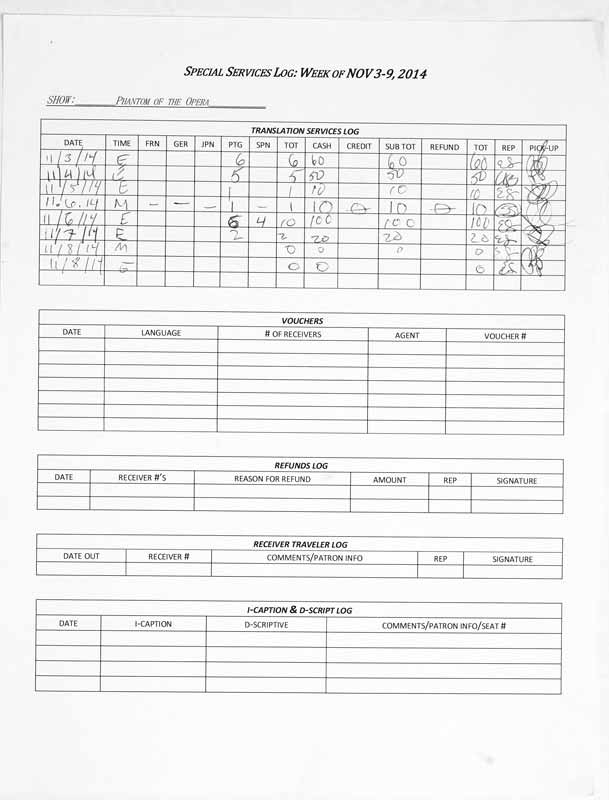 SPECIAL SERVICES LOG: WEEK OF NOV 3-9, 2014
SHOW: PHANTOM OF THE OPERA
TRANSLATION SERVICES LOG
DATE TIME FRN GER JPN PTG SPN TOT CASH CREDIT SUB TOT REFUND TOT REP PICK-UP
11/3/14 E 6 6 60 60 60 ES
11/4/14 E 5 5 50 50 50
11/5/14 E 1 1 10 10 10 ES
11.6.14 M – – – 1 – 1 10 0 10 0 10
11/6/14 E 6 4 10 100 100 100 ES
11/7/14 E 2 2 20 20 20 ES
11/8/14 M 0 0 0 0 ES
11/8/14 E 0 0 0 ES
VOUCHERS
DATE LANGUAGE # OF RECEIVERS AGENT VOUCHER #
REFUNDS LOG
DATE RECEIVER #'S REASON FOR REFUND AMOUNT REP SIGNATURE
RECEIVER TRAVELER LOG
DATE OUT RECEIVER # COMMENTS/PATRON INFO REP SIGNATURE
I-CAPTION & D-SCRIPT LOG
DATE I-CAPTION D-SCRIPTIVE COMMENTS/PATRON INFO/SEAT #